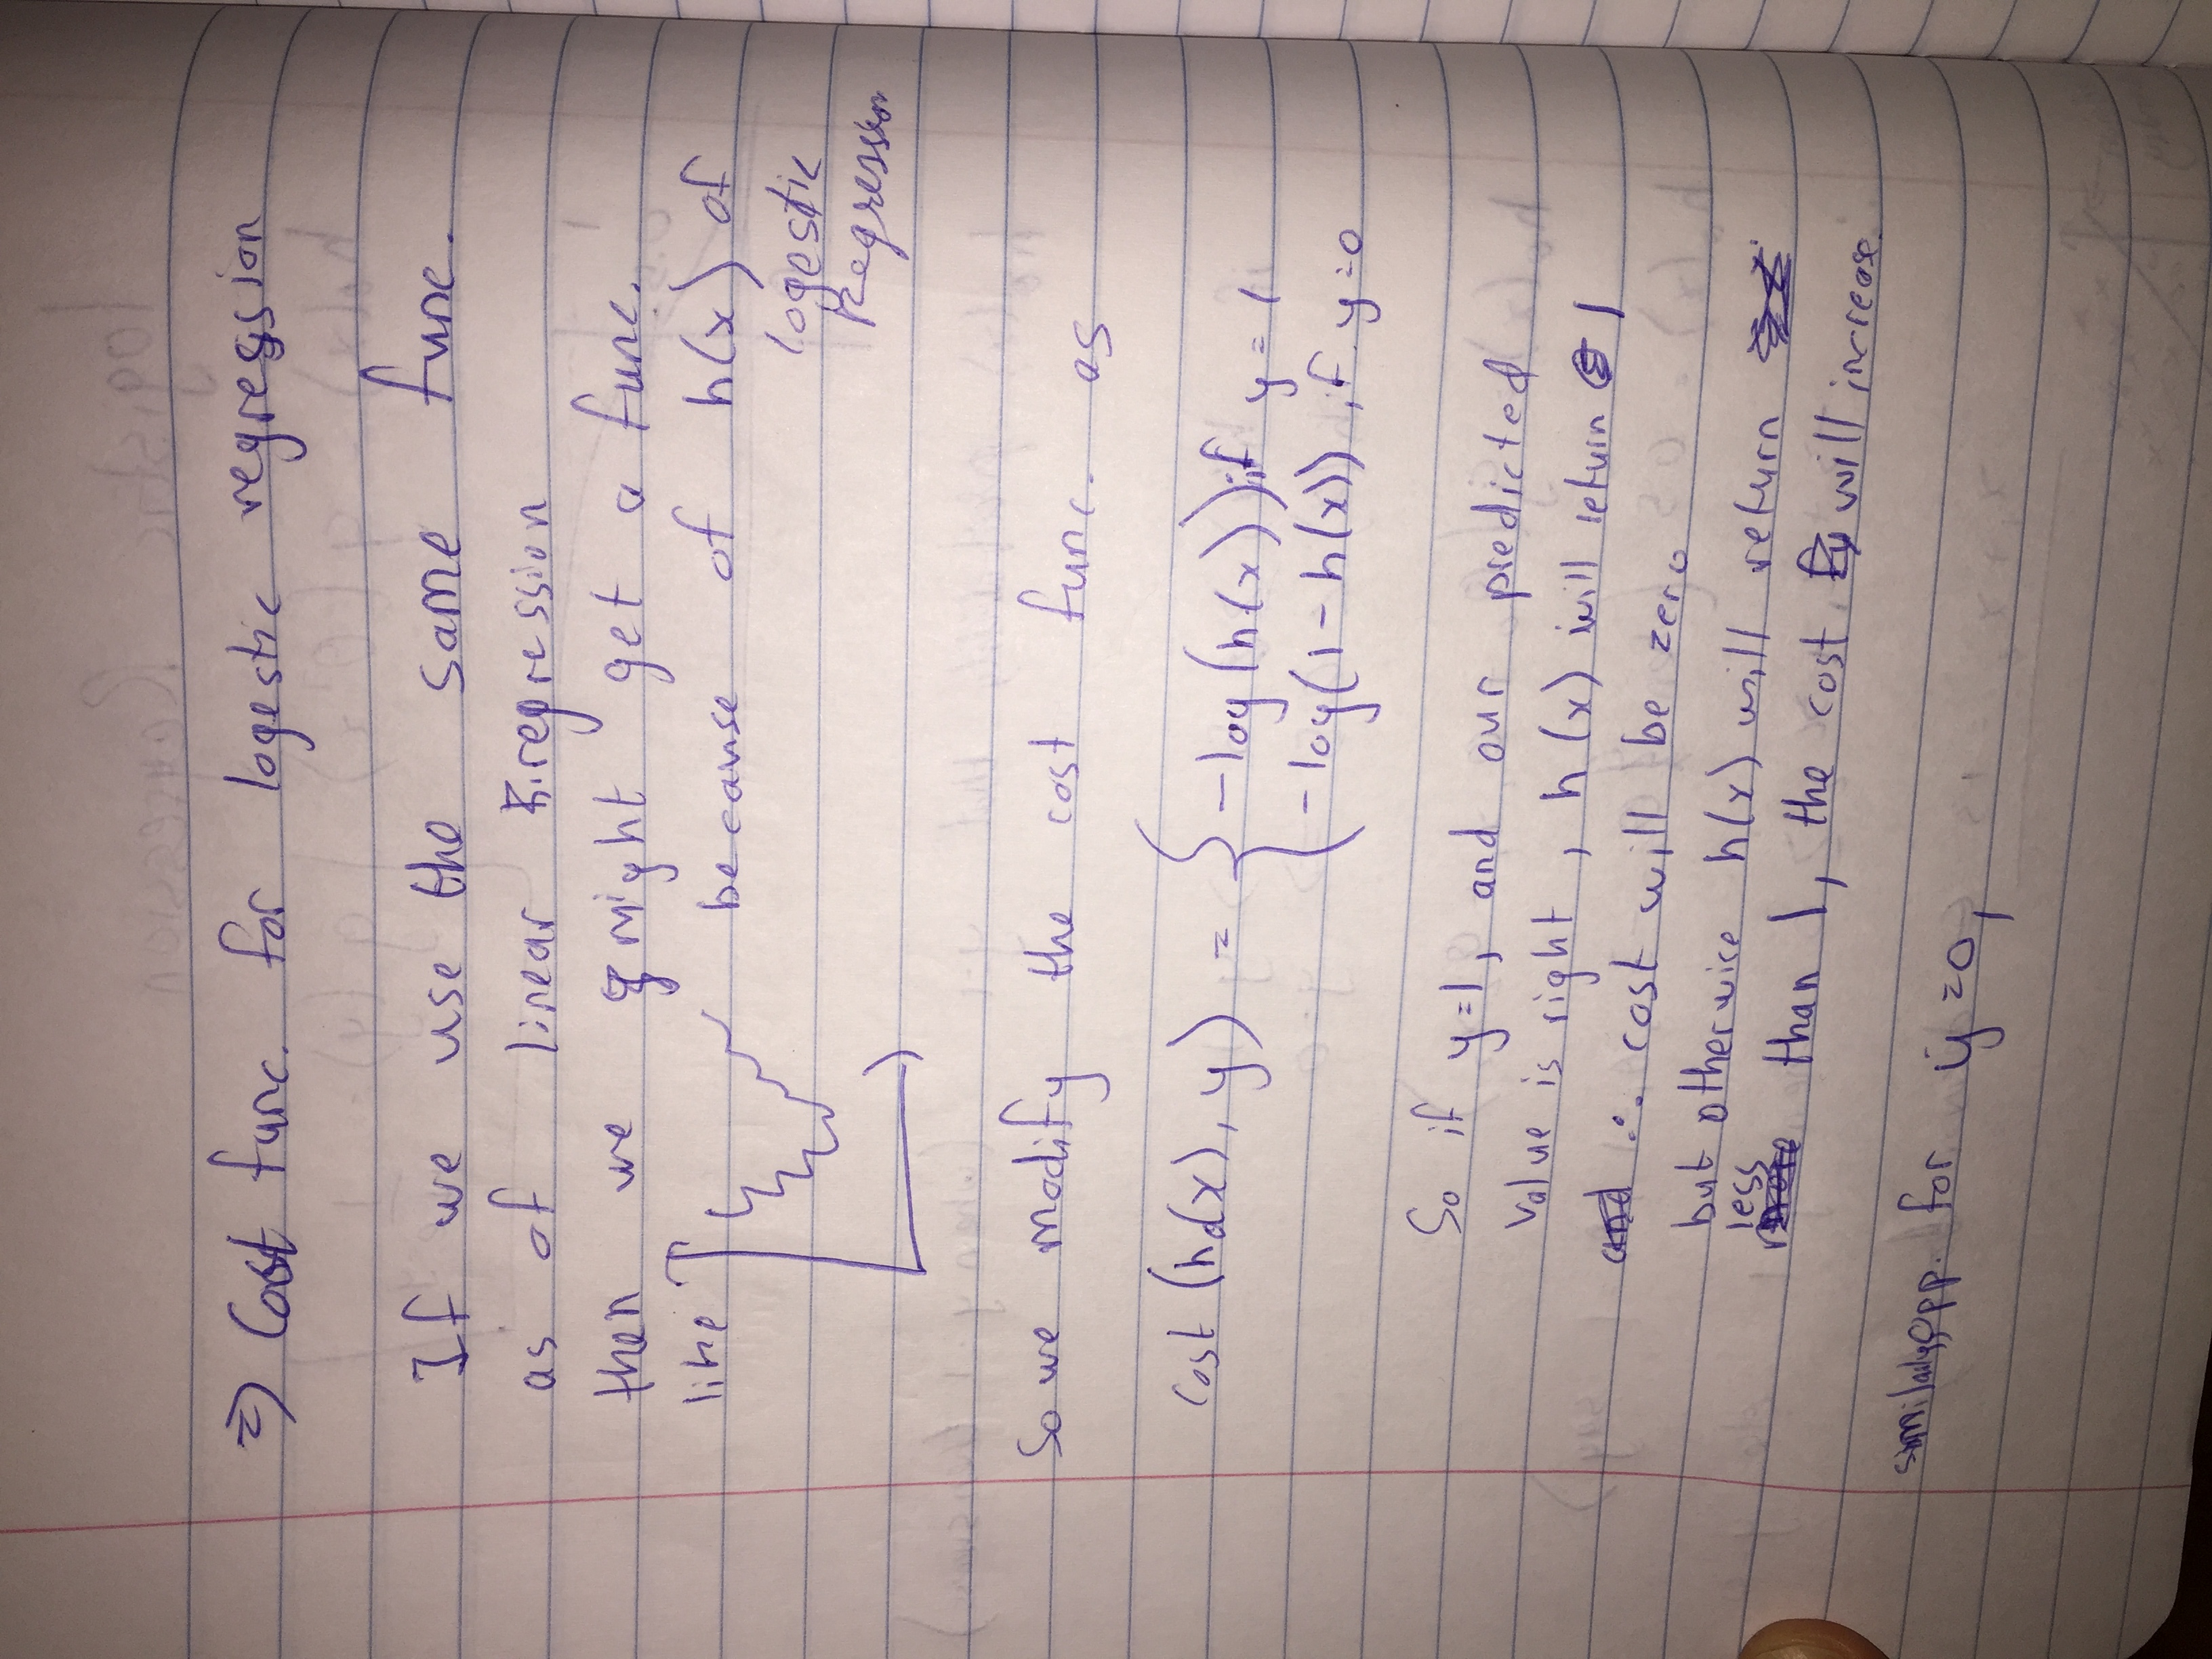 ⇒ Cost func. for logestic regression
If we use the same func.
as of linear regression
then we might get a func.
like because of h(x) of
logestic
Regression
So we modify the cost func. as
Cost (hθ(x), y) = { -log(h(x)) if y = 1
-log(1 - h(x)) , if y = 0
So if y=1, and our predicted
Value is right, h(x) will return 1
and ∴ cost will be zero
but otherwise h(x) will return
less
more than 1, the cost will increase.
similarly, opp. for y = 0,